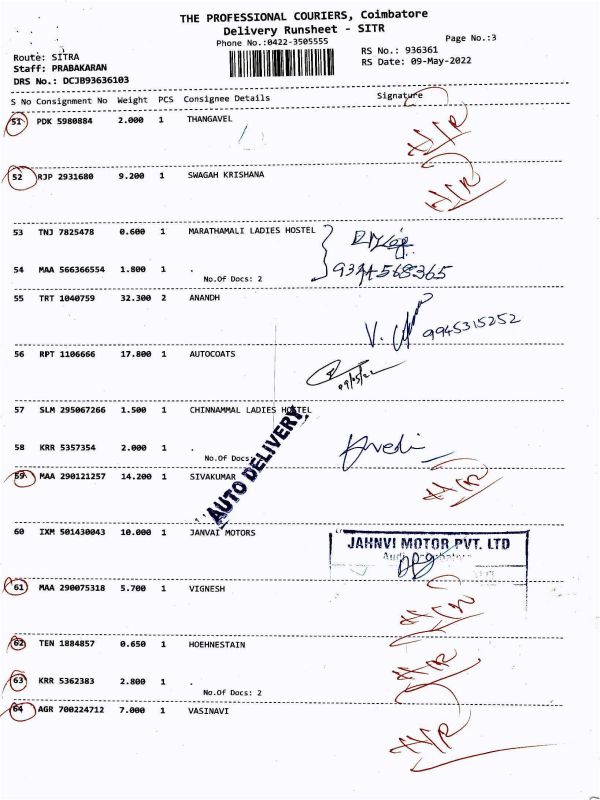 THE PROFESSIONAL COURIERS, Coimbatore
Delivery Runsheet - SITR
Phone No.:0422-3505555
Page No.:3
Route: SITRA
RS No.: 936361
Staff: PRABAKARAN
RS Date: 09-May-2022
DRS No.: DCJB93636103
S No Consignment No Weight PCS Consignee Details Signature
51 PDK 5980884 2.000 1 THANGAVEL
52 RJP 2931680 9.200 1 SWAGAH KRISHANA
53 TNJ 7825478 0.600 1 MARATHAMALI LADIES HOSTEL
54 MAA 566366554 1.800 1 .
No.Of Docs: 2
55 TRT 1040759 32.300 2 ANANDH
9945315252
56 RPT 1106666 17.800 1 AUTOCOATS
09/05/22
57 SLM 295067266 1.500 1 CHINNAMMAL LADIES HOSTEL
58 KRR 5357354 2.000 1 .
No.Of Docs:
AUTO DELIVERY
59 MAA 290121257 14.200 1 SIVAKUMAR
60 IXM 501430043 10.000 1 JANVAI MOTORS
JAHNVI MOTOR PVT. LTD
61 MAA 290075318 5.700 1 VIGNESH
62 TEN 1884857 0.650 1 HOEHNESTAIN
63 KRR 5362383 2.800 1 .
No.Of Docs: 2
64 AGR 700224712 7.000 1 VASINAVI